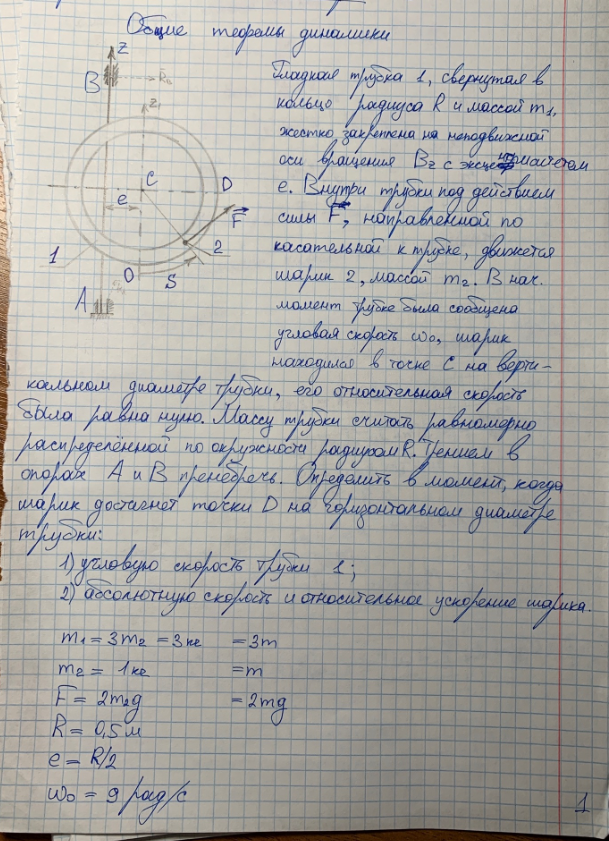 Общие теоремы динамики
z
B
R₀
z₁
C
D
e
F
1
2
O
S
A
Гладкая трубка 1, свернутая в
кольцо радиуса R и массой m₁,
жестко закреплена на неподвижной
оси вращения Bz с эксцентриситетом
e. Внутри трубки под действием
силы F, направленной по
касательной к трубке, движется
шарик 2, массой m₂. В нач.
момент трубке была сообщена
угловая скорость ω₀, шарик
находился в точке C на верти-
кальном диаметре трубки, его относительная скорость
была равна нулю. Массу трубки считать равномерно
распределённой по окружности радиусом R. Трением в
опорах A и B пренебречь. Определить в момент, когда
шарик достигнет точки D на горизонтальном диаметре
трубки:
1) угловую скорость трубки 1;
2) абсолютную скорость и относительное ускорение шарика.
m₁ = 3m₂ = 3кг = 3m
m₂ = 1кг = m
F = 2m₂g = 2mg
R = 0,5м
e = R/2
ω₀ = 9 рад/с
1